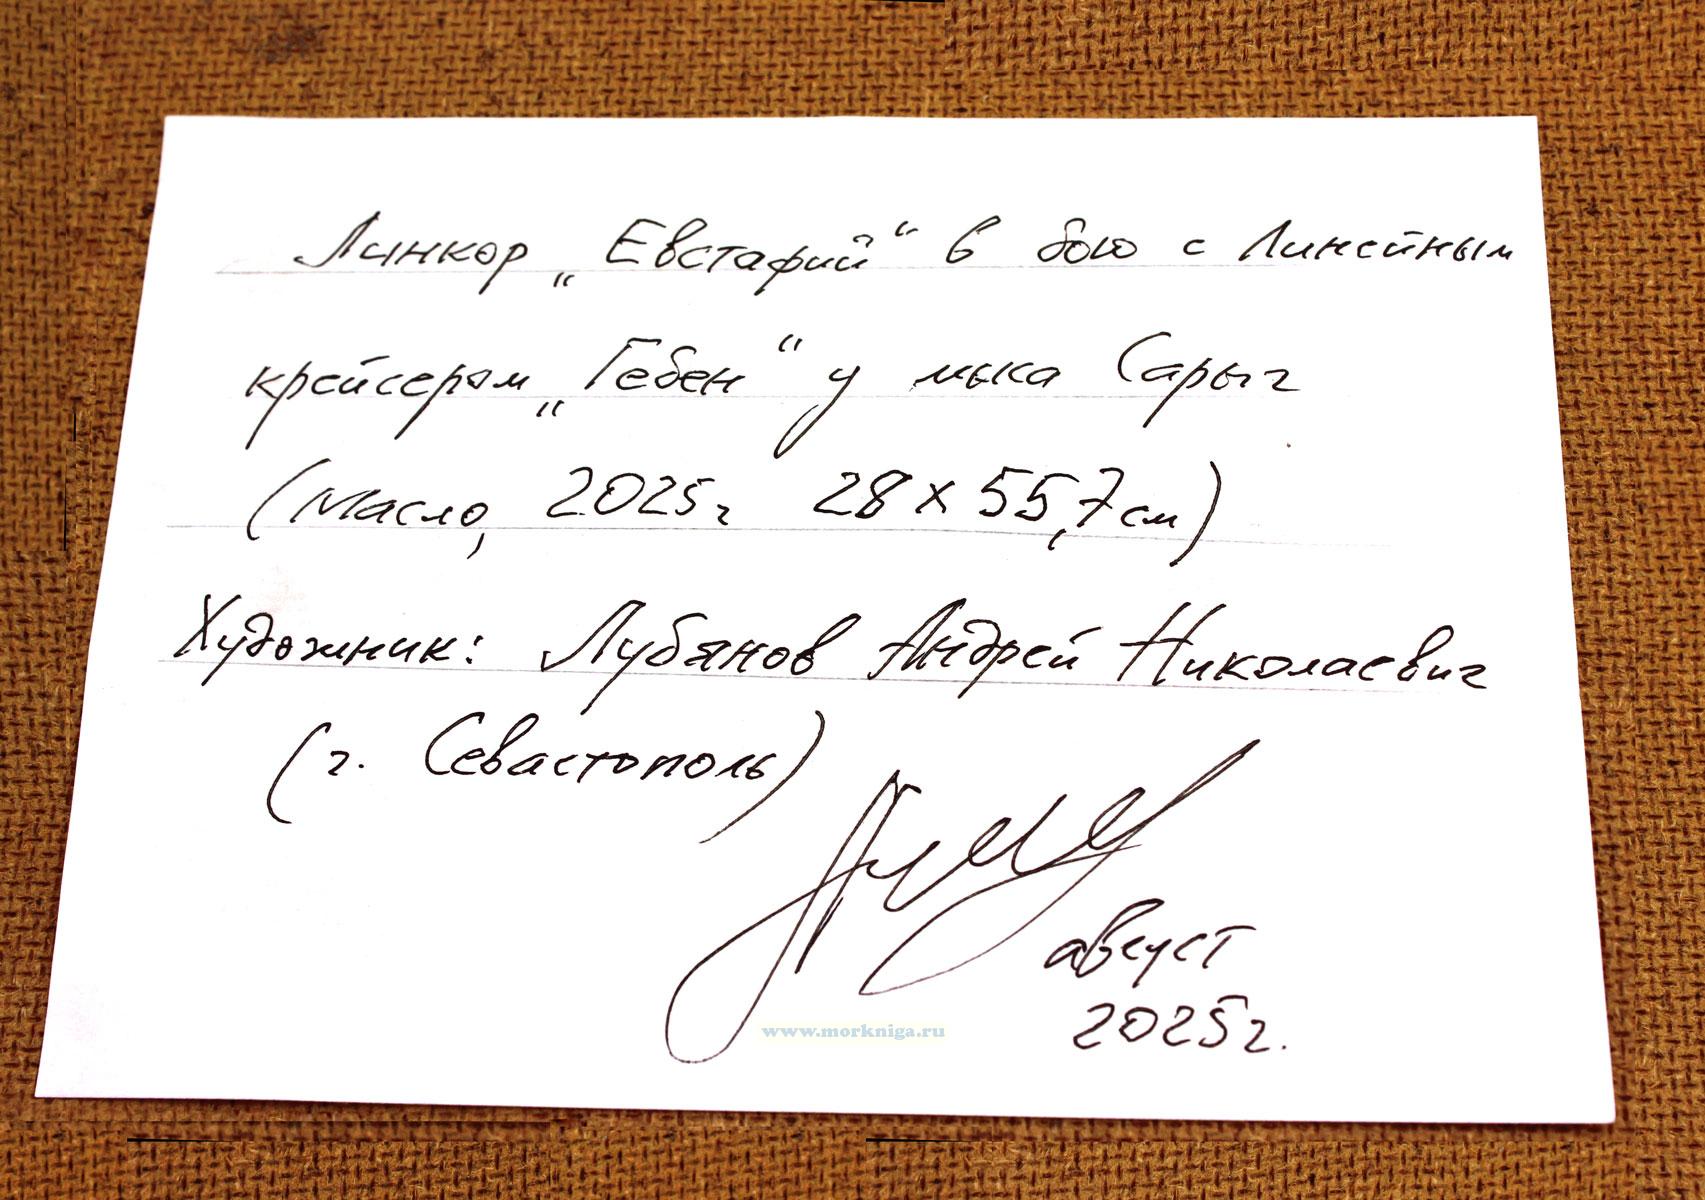 Линкор „Евстафий“ в бою с Линейным
крейсером „Гебен“ у мыса Сарыч
(Масло, 2025г 28 х 55,7см)
Художник: Лубянов Андрей Николаевич
(г. Севастополь)
август
2025г.
www.morkniga.ru